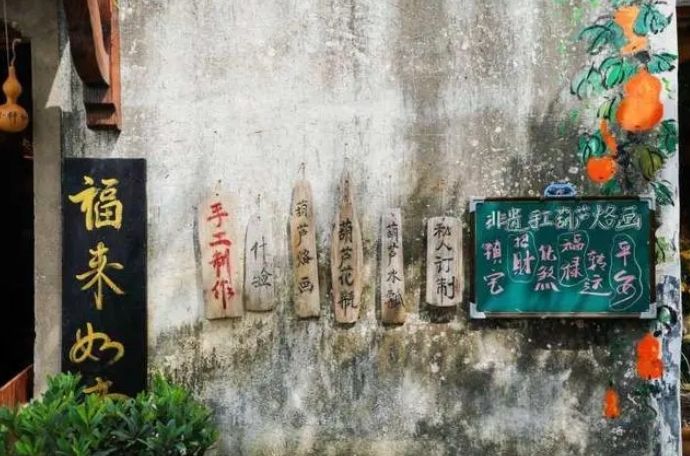 福来如
手工制作
体验
葫芦烙画
葫芦花瓶
葫芦水瓢
私人订制
非遗手工葫芦烙画
镇宅
招财
化煞
福禄
转运
平安